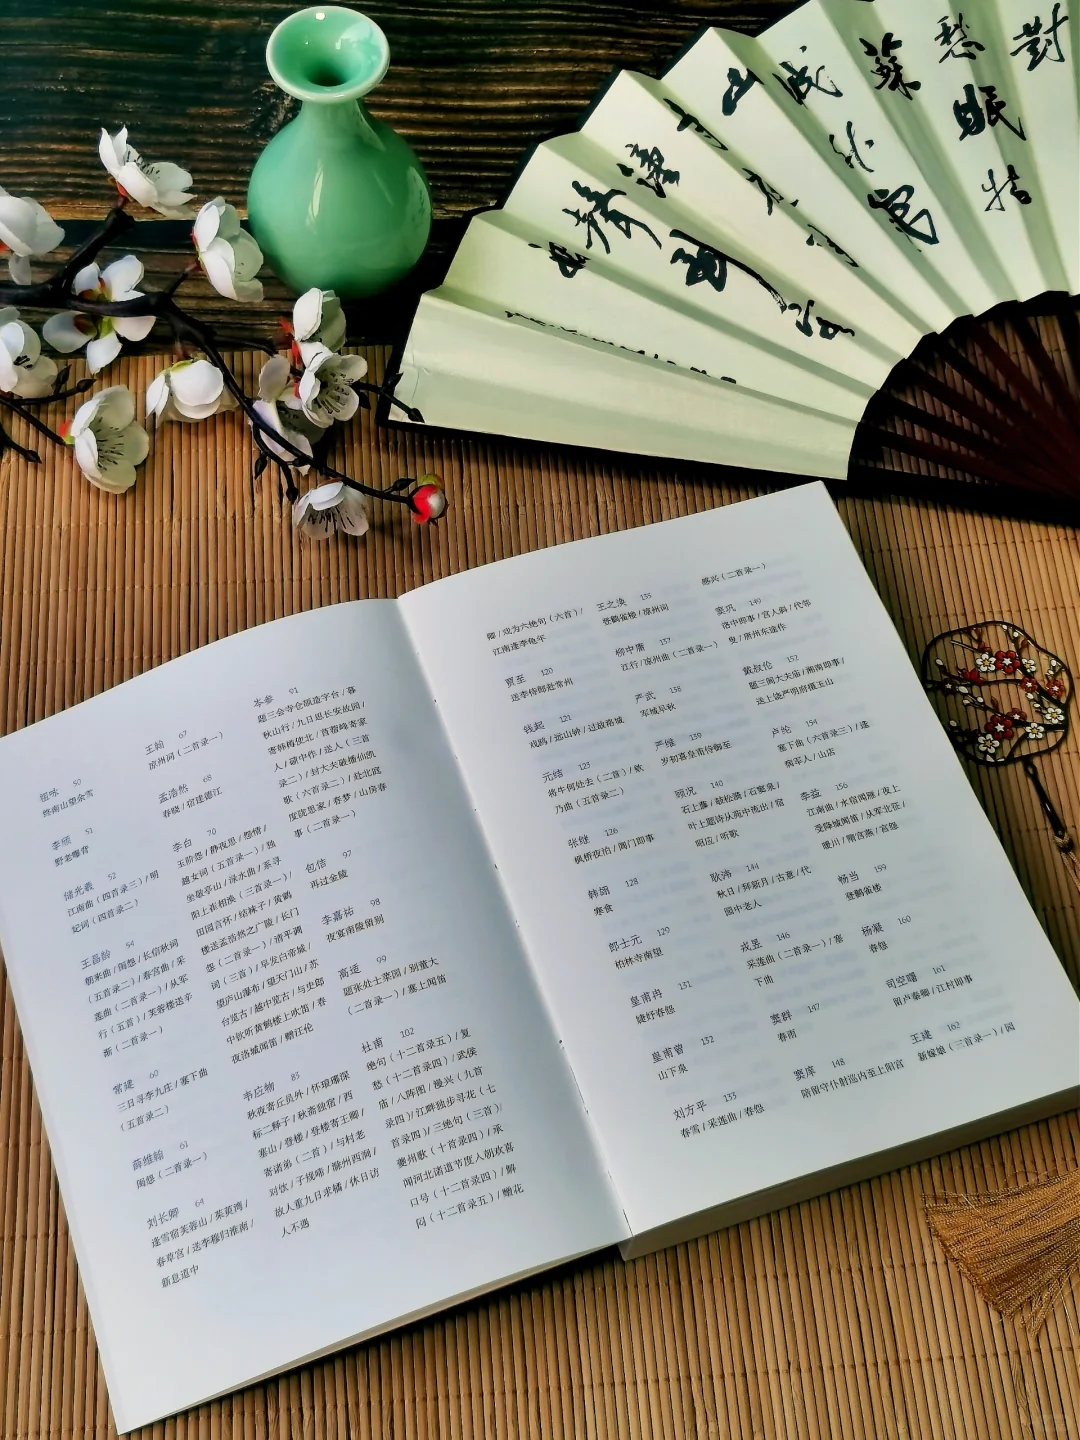 對
愁
眠
江
祖咏 50
终南山望余雪
李颀 51
野老曝背
储光羲 52
江南曲（四首录三）/ 明
妃词（四首录二）
王昌龄 54
朝来曲 / 闺怨 / 长信秋词
（五首录二）/ 春宫曲 / 采
莲曲（二首录一）/ 从军
行（五首）/ 芙蓉楼送辛
渐（二首录一）
常建 60
三日寻李九庄 / 塞下曲
（五首录二）
薛维翰 61
闺怨（二首录一）
刘长卿 64
逢雪宿芙蓉山 / 茱萸湾 /
春草宫 / 送李穆归淮南 /
新息道中
王翰 67
凉州词（二首录一）
孟浩然 68
春晓 / 宿建德江
李白 70
玉阶怨 / 静夜思 / 怨情 /
越女词（五首录一）/ 独
坐敬亭山 / 渌水曲 / 系寻
阳上崔相涣（三首录一）/
田园言怀 / 结袜子 / 黄鹤
楼送孟浩然之广陵 / 长门
怨（二首录一）/ 清平调
词（三首）/ 早发白帝城 /
望庐山瀑布 / 望天门山 / 苏
台览古 / 越中览古 / 与史郎
中钦听黄鹤楼上吹笛 / 春
夜洛城闻笛 / 赠汪伦
韦应物 85
秋夜寄丘员外 / 怀琅琊深
标二释子 / 秋斋独宿 / 西
塞山 / 登楼 / 登楼寄王卿 /
寄诸弟（二首）/ 与村老
对饮 / 子规啼 / 滁州西涧 /
故人重九日求橘 / 休日访
人不遇
岑参 91
题三会寺仓颉造字台 / 暮
秋山行 / 九日思长安故园 /
寄韩樽使北 / 苜蓿峰寄家
人 / 碛中作 / 送人（三首
录二）/ 封大夫破播仙凯
歌（六首录二）/ 处北庭
度陇思家 / 春梦 / 山房春
事（二首录一）
包佶 97
再过金陵
李嘉祐 98
夜宴南陵留别
高适 99
题张处士菜园 / 别董大
（二首录一）/ 塞上闻笛
杜甫 102
绝句（十二首录五）/ 复
愁（十二首录四）/ 武侯
庙 / 八阵图 / 漫兴（九首
录四）/ 江畔独步寻花（七
首录四）/ 三绝句（三首）/
夔州歌（十首录四）/ 承
闻河北诸道节度入朝欢喜
口号（十二首录四）/ 解
闷（十二首录五）/ 赠花
卿 / 戏为六绝句（六首）/
江南逢李龟年
贾至 120
送李侍郎赴常州
钱起 121
戏鸥 / 远山钟 / 过故洛城
元结 123
将牛何处去（二首）/ 欸
乃曲（五首录二）
张继 126
枫桥夜泊 / 阊门即事
韩翃 128
寒食
郎士元 129
柏林寺南望
皇甫冉 131
婕妤春怨
皇甫曾 132
山下泉
刘方平 133
春雪 / 采莲曲 / 春怨
王之涣 135
登鹳雀楼 / 凉州词
柳中庸 137
江行 / 凉州曲（二首录一）
严武 138
军城早秋
严维 139
岁初喜皇甫侍御至
顾况 140
石上藤 / 鼓松满 / 石窦泉 /
叶上题诗从苑中流出 / 宿
昭应 / 听歌
耿湋 144
秋日 / 拜新月 / 古意 / 代
园中老人
戎昱 146
采莲曲（二首录一）/ 塞
下曲
窦群 147
春雨
窦庠 148
陪留守仆射巡内至上阳宫
感兴（二首录一）
窦巩 149
洛中即事 / 宫人斜 / 代邻
叟 / 唐州东途作
戴叔伦 152
题三闾大夫庙 / 湘南即事 /
送上饶严明府摄玉山
卢纶 154
塞下曲（六首录三）/ 逢
病军人 / 山店
李益 156
江南曲 / 水宿闻雁 / 夜上
受降城闻笛 / 从军北征 /
暖川 / 隋宫燕 / 宫怨
畅当 159
登鹳雀楼
杨凝 160
春怨
司空曙 161
留卢秦卿 / 江村即事
王建 162
新嫁娘（三首录一）/ 园